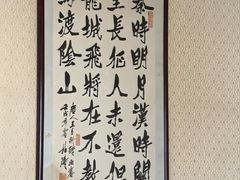 秦時明月漢時關
里長征人未還但
龍城飛將在不教
馬渡陰山
唐人王昌齡